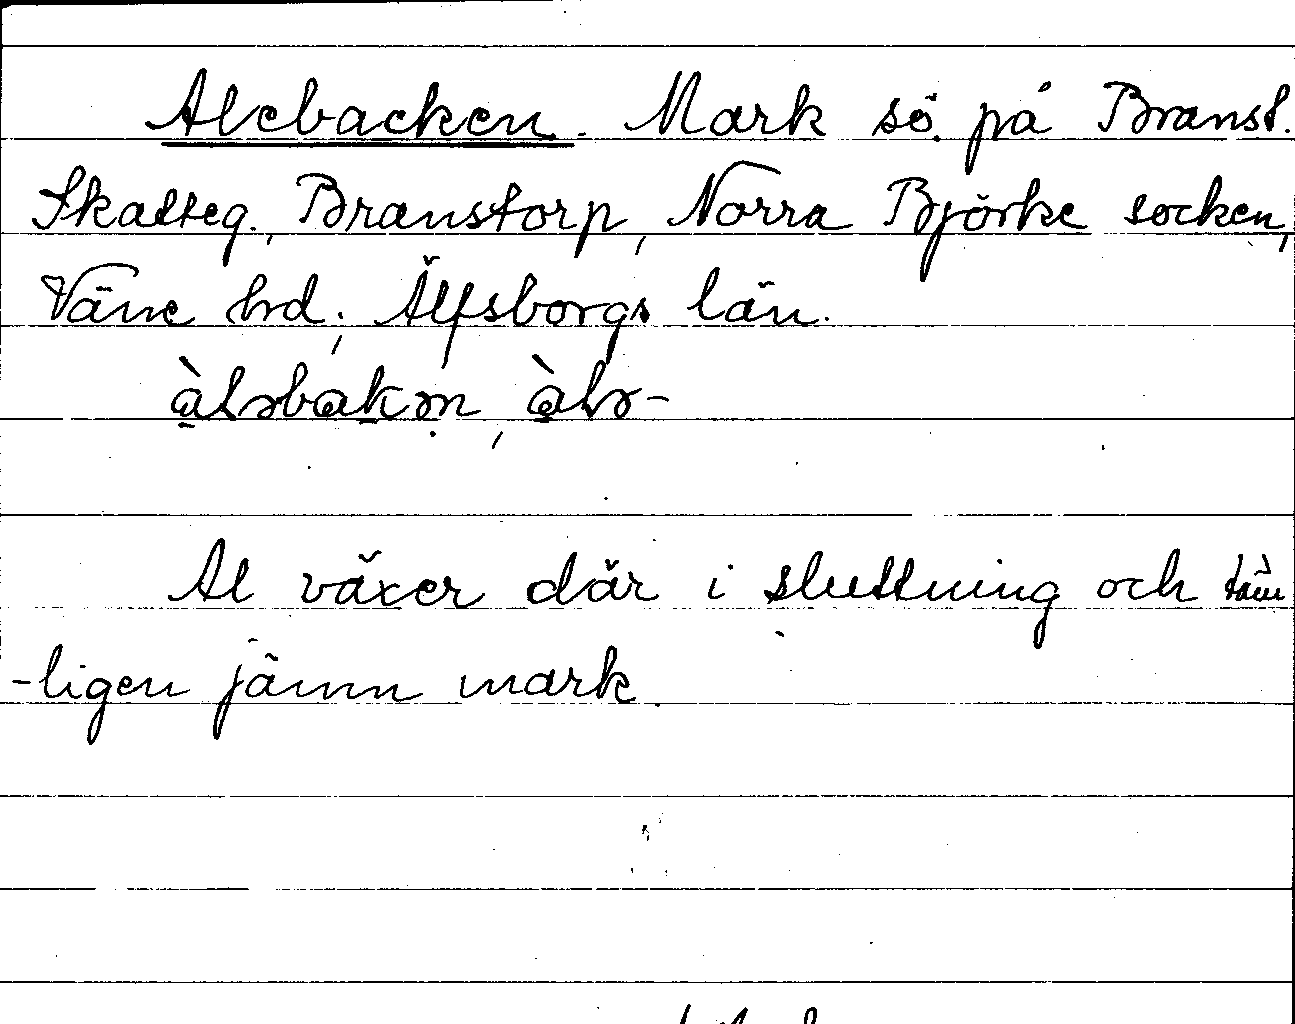 Alebacken. Mark sö. på Branst.
Skatteg., Branstorp, Norra Björke socken,
Väne hd, Älfsborgs län.
àləbakən, àlə-
Al växer där i sluttning och täm
-ligen jämn mark.